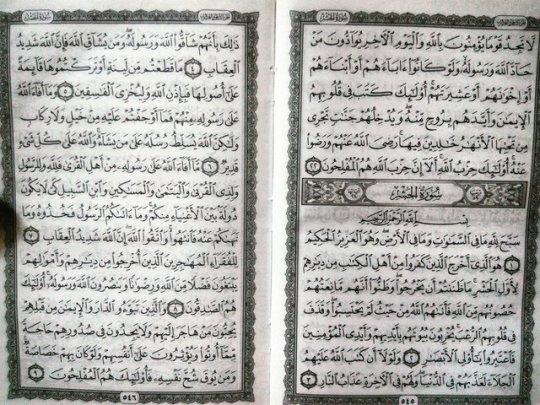 الجزء الثامن والعشرون سورة الحشر
لَّا تَجِدُ قَوْمًا يُؤْمِنُونَ بِاللَّهِ وَالْيَوْمِ الْآخِرِ يُوَادُّونَ مَنْ
حَادَّ اللَّهَ وَرَسُولَهُ وَلَوْ كَانُوا ءَابَاءَهُمْ أَوْ أَبْنَاءَهُمْ
أَوْ إِخْوَانَهُمْ أَوْ عَشِيرَتَهُمْ أُولَٰئِكَ كَتَبَ فِي قُلُوبِهِمُ
الْإِيمَانَ وَأَيَّدَهُم بِرُوحٍ مِّنْهُ وَيُدْخِلُهُمْ جَنَّاتٍ تَجْرِي
مِن تَحْتِهَا الْأَنْهَارُ خَالِدِينَ فِيهَا رَضِيَ اللَّهُ عَنْهُمْ وَرَضُوا
عَنْهُ أُولَٰئِكَ حِزْبُ اللَّهِ أَلَا إِنَّ حِزْبَ اللَّهِ هُمُ الْمُفْلِحُونَ ٢٢
سُورَةُ الْحَشْرِ
بِسْمِ اللَّهِ الرَّحْمَٰنِ الرَّحِيمِ
سَبَّحَ لِلَّهِ مَا فِي السَّمَاوَاتِ وَمَا فِي الْأَرْضِ وَهُوَ الْعَزِيزُ الْحَكِيمُ
١ هُوَ الَّذِي أَخْرَجَ الَّذِينَ كَفَرُوا مِنْ أَهْلِ الْكِتَابِ مِن دِيَارِهِمْ
لِأَوَّلِ الْحَشْرِ مَا ظَنَنتُمْ أَن يَخْرُجُوا وَظَنُّوا أَنَّهُم مَّانِعَتُهُمْ
حُصُونُهُم مِّنَ اللَّهِ فَأَتَاهُمُ اللَّهُ مِنْ حَيْثُ لَمْ يَحْتَسِبُوا وَقَذَفَ
فِي قُلُوبِهِمُ الرُّعْبَ يُخْرِبُونَ بُيُوتَهُم بِأَيْدِيهِمْ وَأَيْدِي الْمُؤْمِنِينَ
فَاعْتَبِرُوا يَا أُولِي الْأَبْصَارِ ٢ وَلَوْلَا أَن كَتَبَ اللَّهُ عَلَيْهِمُ
الْجَلَاءَ لَعَذَّبَهُمْ فِي الدُّنْيَا وَلَهُمْ فِي الْآخِرَةِ عَذَابُ النَّارِ ٣
٥٤٥
الجزء الثامن والعشرون سورة الحشر
ذَٰلِكَ بِأَنَّهُمْ شَاقُّوا اللَّهَ وَرَسُولَهُ وَمَن يُشَاقِّ اللَّهَ فَإِنَّ اللَّهَ شَدِيدُ
الْعِقَابِ ٤ مَا قَطَعْتُم مِّن لِّينَةٍ أَوْ تَرَكْتُمُوهَا قَائِمَةً
عَلَىٰ أُصُولِهَا فَبِإِذْنِ اللَّهِ وَلِيُخْزِيَ الْفَاسِقِينَ ٥ وَمَا أَفَاءَ اللَّهُ
عَلَىٰ رَسُولِهِ مِنْهُمْ فَمَا أَوْجَفْتُمْ عَلَيْهِ مِنْ خَيْلٍ وَلَا رِكَابٍ
وَلَٰكِنَّ اللَّهَ يُسَلِّطُ رُسُلَهُ عَلَىٰ مَن يَشَاءُ وَاللَّهُ عَلَىٰ كُلِّ شَيْءٍ
قَدِيرٌ ٦ مَّا أَفَاءَ اللَّهُ عَلَىٰ رَسُولِهِ مِنْ أَهْلِ الْقُرَىٰ فَلِلَّهِ وَلِلرَّسُولِ
وَلِذِي الْقُرْبَىٰ وَالْيَتَامَىٰ وَالْمَسَاكِينِ وَابْنِ السَّبِيلِ كَيْ لَا يَكُونَ
دُولَةً بَيْنَ الْأَغْنِيَاءِ مِنكُمْ وَمَا ءَاتَاكُمُ الرَّسُولُ فَخُذُوهُ وَمَا
نَهَاكُمْ عَنْهُ فَانتَهُوا وَاتَّقُوا اللَّهَ إِنَّ اللَّهَ شَدِيدُ الْعِقَابِ ٧
لِلْفُقَرَاءِ الْمُهَاجِرِينَ الَّذِينَ أُخْرِجُوا مِن دِيَارِهِمْ وَأَمْوَالِهِمْ
يَبْتَغُونَ فَضْلًا مِّنَ اللَّهِ وَرِضْوَانًا وَيَنصُرُونَ اللَّهَ وَرَسُولَهُ أُولَٰئِكَ
هُمُ الصَّادِقُونَ ٨ وَالَّذِينَ تَبَوَّءُو الدَّارَ وَالْإِيمَانَ مِن قَبْلِهِمْ
يُحِبُّونَ مَنْ هَاجَرَ إِلَيْهِمْ وَلَا يَجِدُونَ فِي صُدُورِهِمْ حَاجَةً
مِّمَّا أُوتُوا وَيُؤْثِرُونَ عَلَىٰ أَنفُسِهِمْ وَلَوْ كَانَ بِهِمْ خَصَاصَةٌ
وَمَن يُوقَ شُحَّ نَفْسِهِ فَأُولَٰئِكَ هُمُ الْمُفْلِحُونَ ٩
٥٤٦